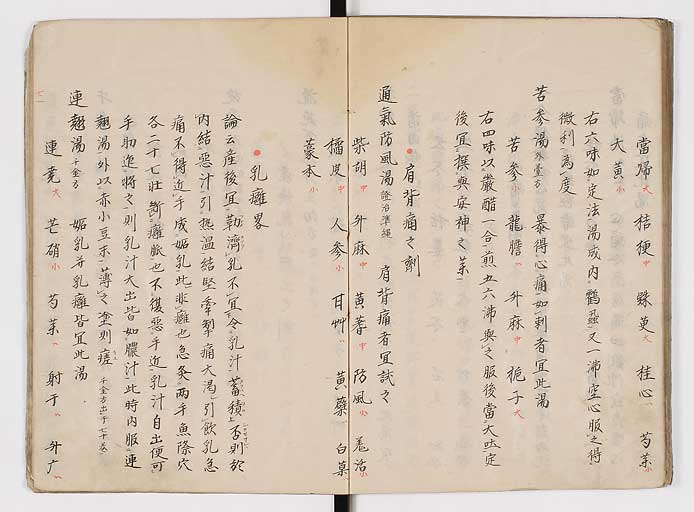 當歸大 桔梗中 銖萸大 桂心 芍茱小
大黃小
右六味如定法湯成內鸛蝨又一沸空心服之得
微利為度
苦參湯外臺方 暴得心痛如刺者宜此湯
苦參小 龍膽 升麻中 梔子大
右四味以嚴醋一合煎五六沸與之服後當大吐定
後宜撰與安神之茱
肩背痛之劑
通氣防風湯證治準繩 肩背痛者宜試之
柴胡中 升麻中 黃蓍中 防風小 羗活小
橘皮中 人參小 甘艸 黃蘗 白䓻
藁本小
乳癰畧
論云產後宜勤濟乳不宜令乳汁蓄積否則於
內結惡汁引熱溫結堅牽掣痛大渴引飲乳急
痛不得近手成妬乳此非癰也急灸兩手魚際穴
各二十七壯斷癰脈也不復惡手近乳汁自出便可
手助迮將之則乳汁大出皆如膿汁此時內服連
翹湯外以赤小豆末薄之塗則瘥千金方出于七十卷
連翹湯千金方 妬乳并乳癰皆宜此湯
連壳大 芒硝小 芍茱 射干 升广